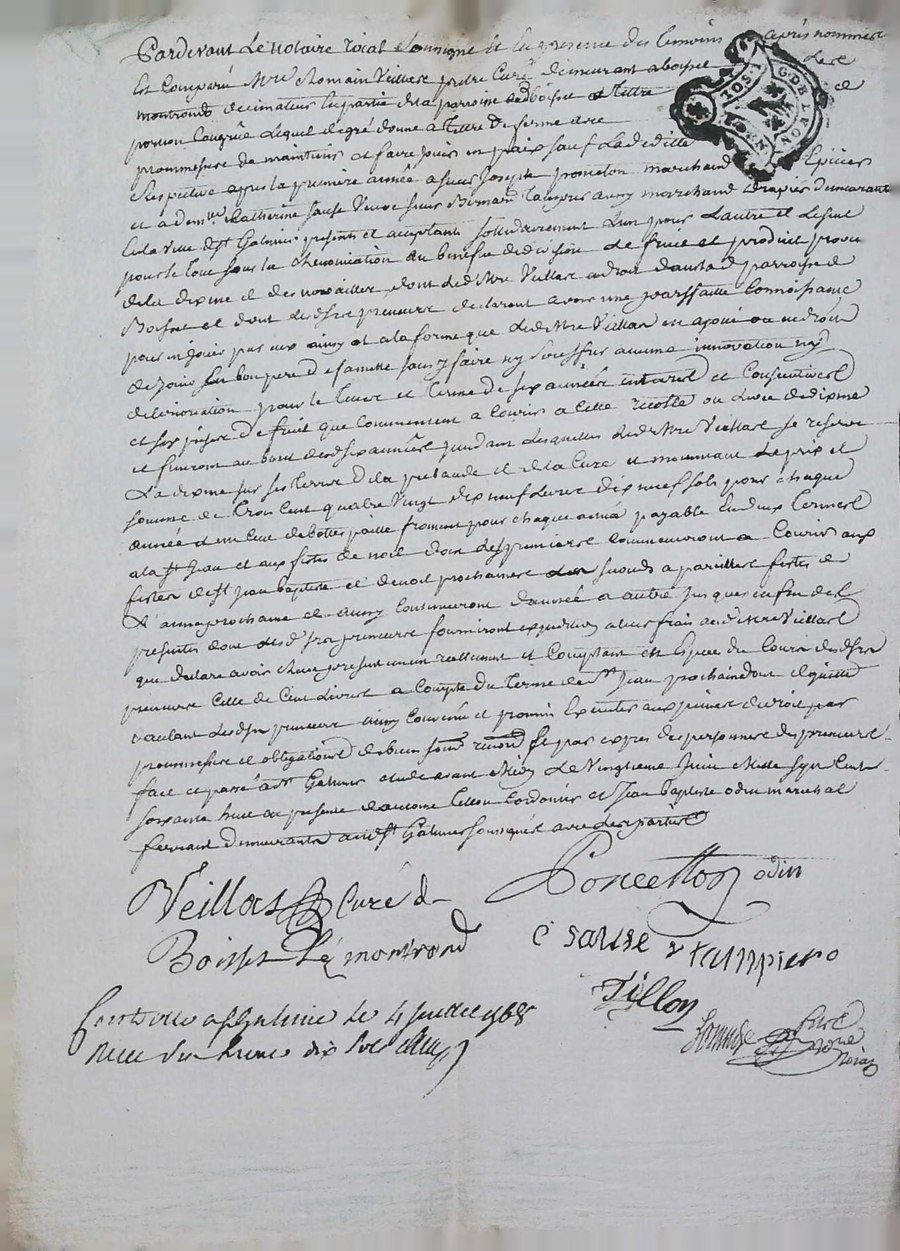 Pardevant Le Notaire roial soussigné et en presence des temoins après nommés
Est Comparu Mre Romain Veillas prêtre Curé demeurant a boisset Les
montrond decimateur en partie de la parroisse de boisset et a tittre de
portion Congrüe Lequel de gré donne a tittre de ferme avec
prommesse de maintenir et faire jouir en paix sauf
respective apres la premiere année a sieur Joseph ponceton marchand Epicier
et a demlle Catherine sause Veuve sieur Bernard tampier aussy marchand drapier demeurants
en la Ville de st Galmier presents et acceptants solidairement L'un pour L'autre et le seul
pour le tout sous la renonciation au benefice de division Le fruit et produit
de la dixme et des novailles dont led Mre Veillas a droit dans lad parroisse de
Boisset et dont lesd srs preneurs declarent avoir une parffaitte Connoissance
pour en jouir par eux ainsy et a la forme que led Mre Veillas en a joui ou eu droit
de jouir en bon pere de famille sans y faire ny souffrir aucune innovation ny
deterioration pour le tems et terme de six années entieres et Consecutives
et six prises de fruit que Commencent a Courir a Cette recolte ou levée de dixme
et finiront au bout desd six années pendant lesquelles led Mre Veillas se reserve
La dixme sur les terres de la prebande et de la Cure et moiennant Le prix et
somme de trois Cent quatre Vingt dix neuf Livres dix neuf sols pour chaque
année et un Cent de bottes paille froment pour chaque année payable en deux termes
a la st Jean et aux fettes de noel dont les premiers Commenceront a Courir aux
fettes de st Jean baptiste et de noel prochaines Les seconds a pareilles fettes de
L'année prochaine et ainsy Continueront d'année a autre jusques en fin des
presentes dont lesd srs preneurs fourniront expedition a leurs frais aud Mre Veillas
que declare avoir receu presentement reellement et Comptant en Especes du Cours desd srs
preneurs Celle de Cent Livres a Compte du terme de st Jean prochain dont il quitte
d'autant lesd srs preneurs ainsy Convenu et promis Executer aux peines de droit par
prommesses et obligations de biens soumis renoncé et par exprès des personnes des preneurs
fait et passé a st Galmier etude avant Midy Le Vingtieme Juin Mille sept Cent
soixante huit en presence d'antoine tillon Cordonier et Jean Baptiste odin marechal
ferrant demeurants aud st Galmier soussignés avec Les parties
Veillas Curé de
Boisset Lé montrond
Poncetton odin
C sause v tampiero
Tillon
Controlle a st Galmier le 4 Juillet 1768
Recu